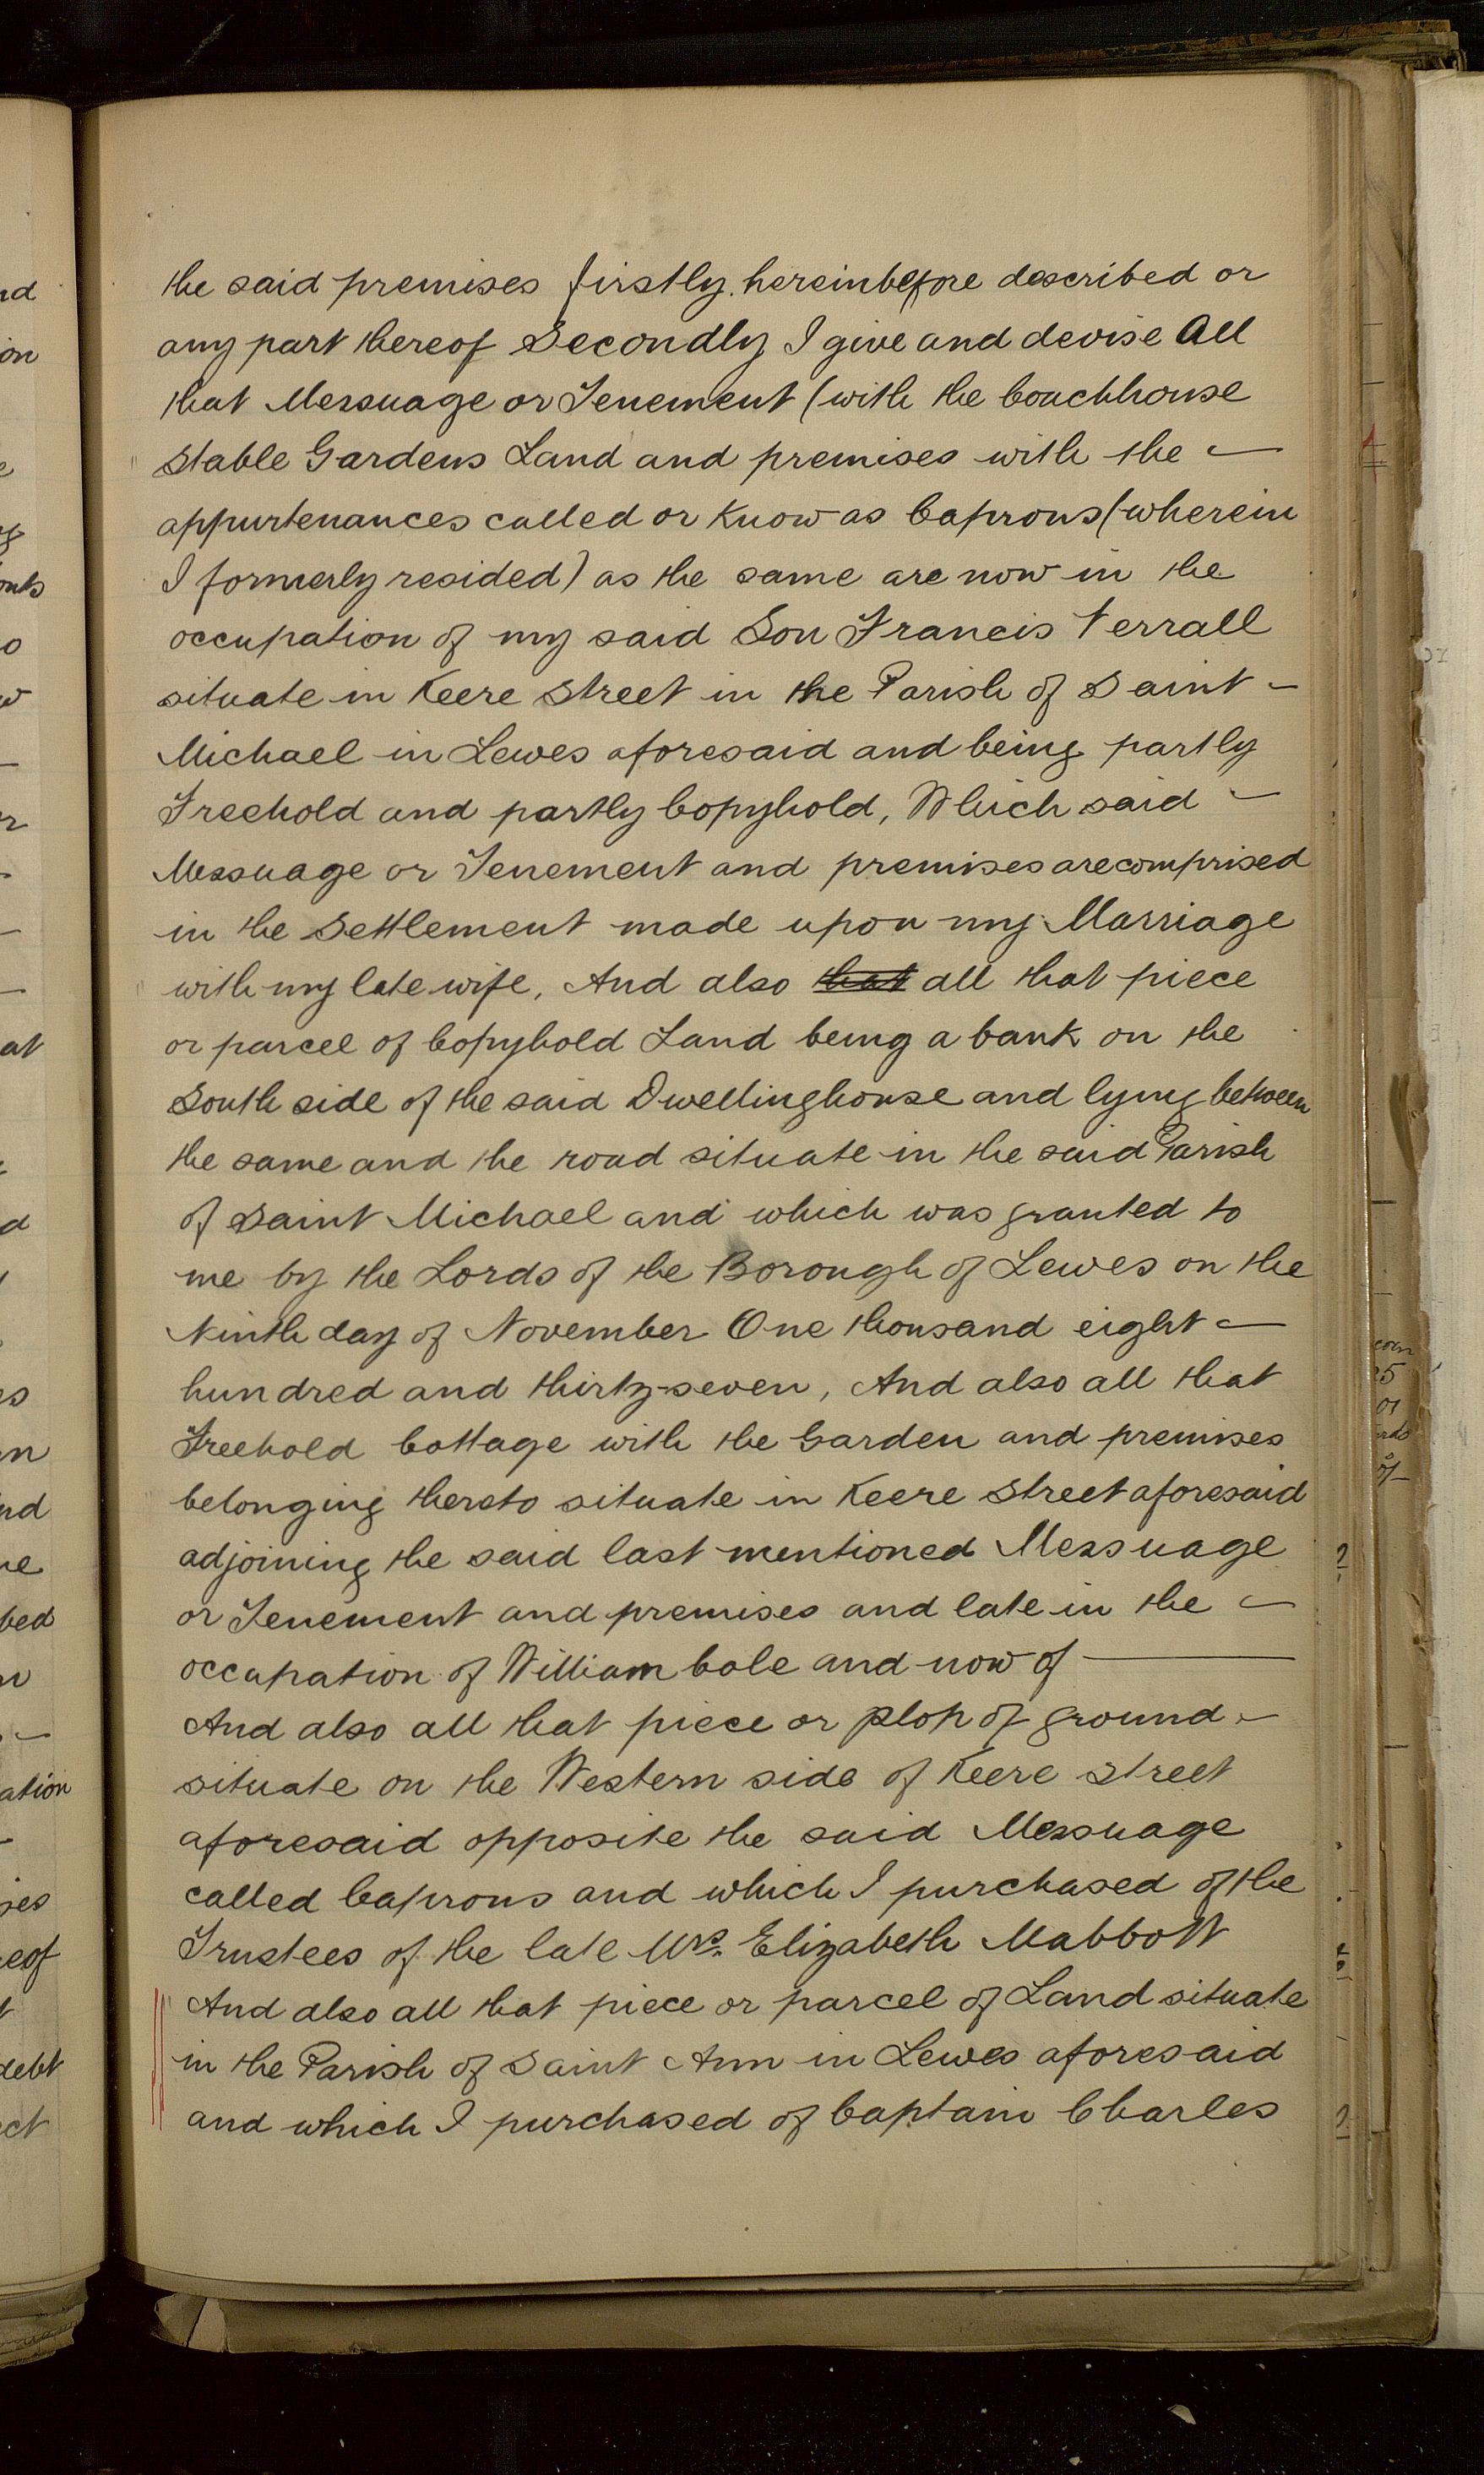 the said premises firstly hereinbefore described or
any part thereof Secondly I give and devise All
that Messuage or Tenement (with the Coachhouse
Stable Gardens Land and premises with the —
appurtenances called or know as Caprons (wherein
I formerly resided) as the same are now in the
occupation of my said Son Francis Verrall
situate in Keere Street in the Parish of Saint —
Michael in Lewes aforesaid and being partly
Freehold and partly Copyhold, Which said —
Messuage or Tenement and premises are comprised
in the Settlement made upon my Marriage
with my late wife, And also that all that piece
or parcel of Copyhold Land being a bank on the
South side of the said Dwellinghouse and lying between
the same and the road situate in the said Parish
of Saint Michael and which was granted to
me by the Lords of the Borough of Lewes on the
Ninth day of November One thousand eight —
hundred and thirty-seven, And also all that
Freehold Cottage with the Garden and premises
belonging thereto situate in Keere Street aforesaid
adjoining the said last mentioned Messuage
or Tenement and premises and late in the —
occupation of William Cole and now of —
And also all that piece or plop of ground —
situate on the Western side of Keere Street
aforesaid opposite the said Messuage
called Caprons and which I purchased of the
Trustees of the late Mrs. Elizabeth Mabbott
And also all that piece or parcel of Land situate
in the Parish of Saint Ann in Lewes aforesaid
and which I purchased of Captain Charles